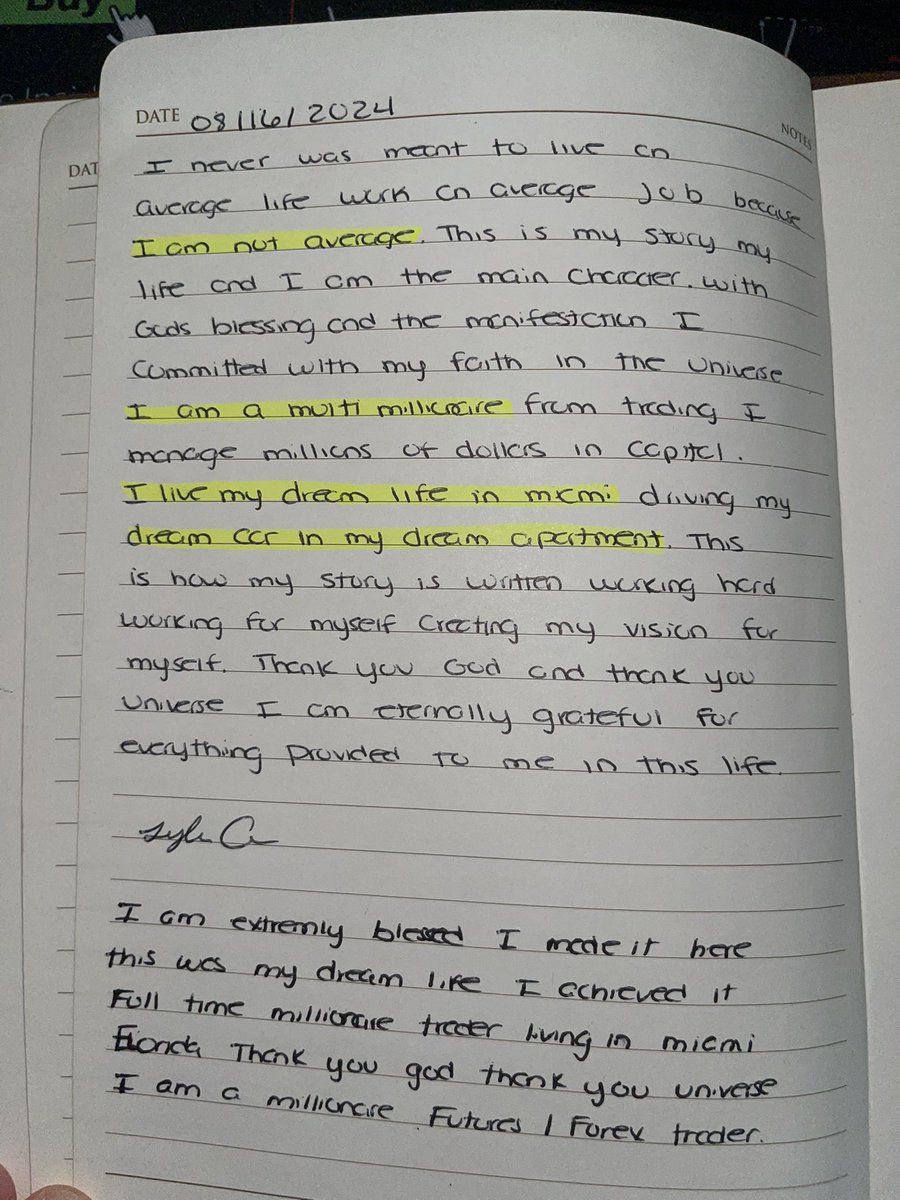 Buy
DATE 08/16/2024
NOTES
DAT
I never was meant to live an
average life work an average Job because
I am not average. This is my story my
life and I am the main character. with
Gods blessing and the manifestation I
committed with my faith in the universe
I am a multi millionaire from trading I
manage millions of dollars in capital.
I live my dream life in miami driving my
dream car in my dream apartment. This
is how my story is written working hard
working for myself creating my vision for
myself. Thank you God and thank you
universe I am eternally grateful for
everything provided to me in this life.
I am extremly blessed I made it here
this was my dream life I achieved it
Full time millionaire trader living in miami
Florida Thank you god thank you universe
I am a millionaire Futures / Forex trader.